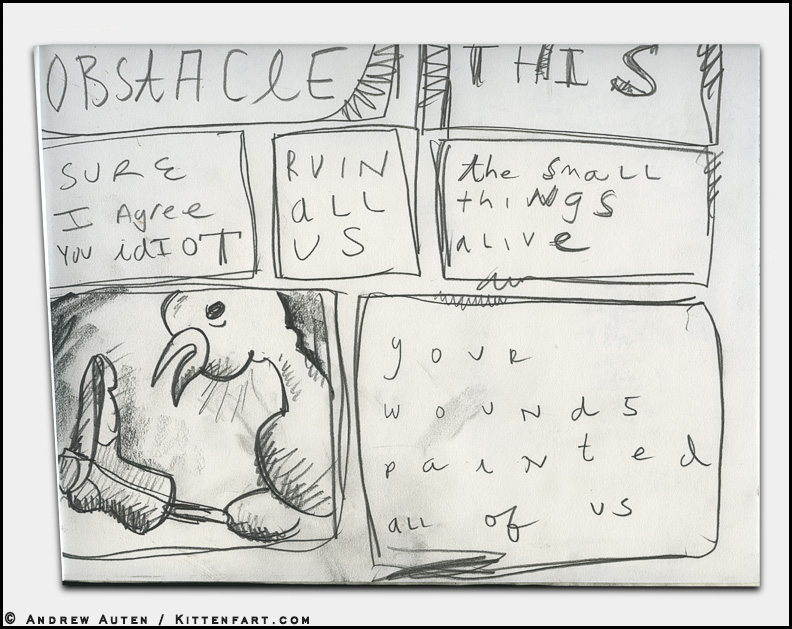 OBSTACLE
THIS
SURE
I Agree
YOU idIOT
RUIN
aLL
US
the small
thiNgS
aLIVe
yOUR
wOUNdS
paiNted
aLL of US
© Andrew Auten / Kittenfart.com